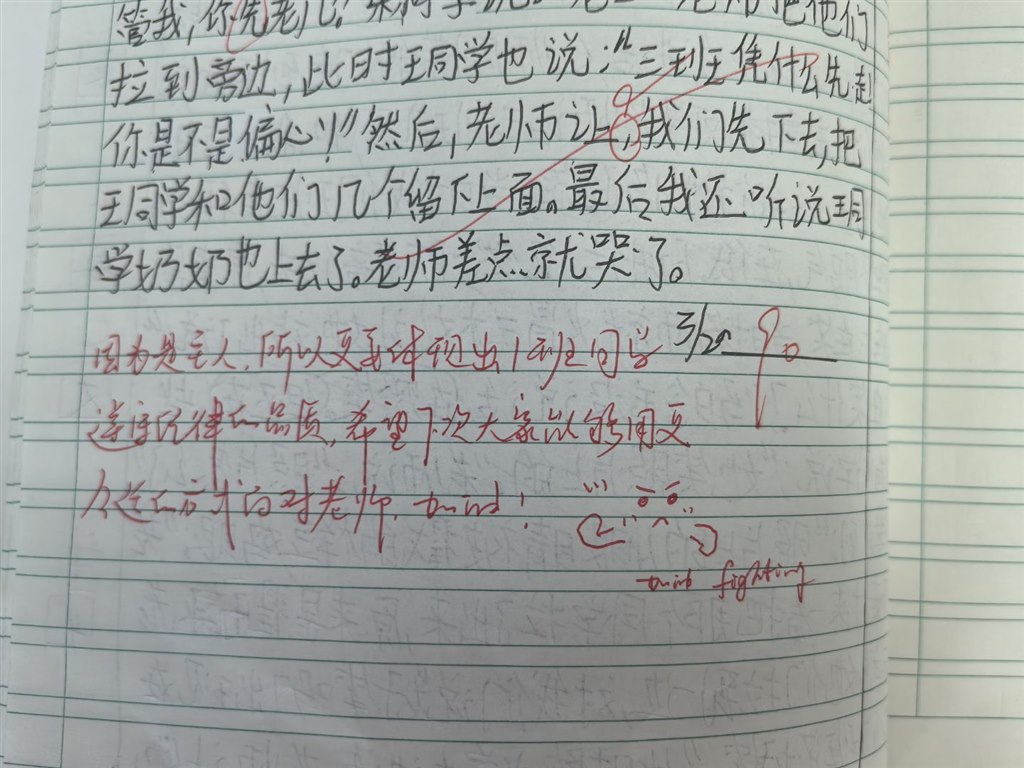 管我,你先老几?
拉到旁边,此时王同学也说:“三班王凭什么先走
你是不是偏心!”然后,老师让,我们先下去,把
王同学和他们几个留下上面。最后我还听说王同
学奶奶也上去了。老师差点就哭了。
因为是主人,所以更要体现出1班同学 3/20 90
遵守纪律的品质,希望下次大家能够用更
合适的方式面对老师,加油!
加油 fighting